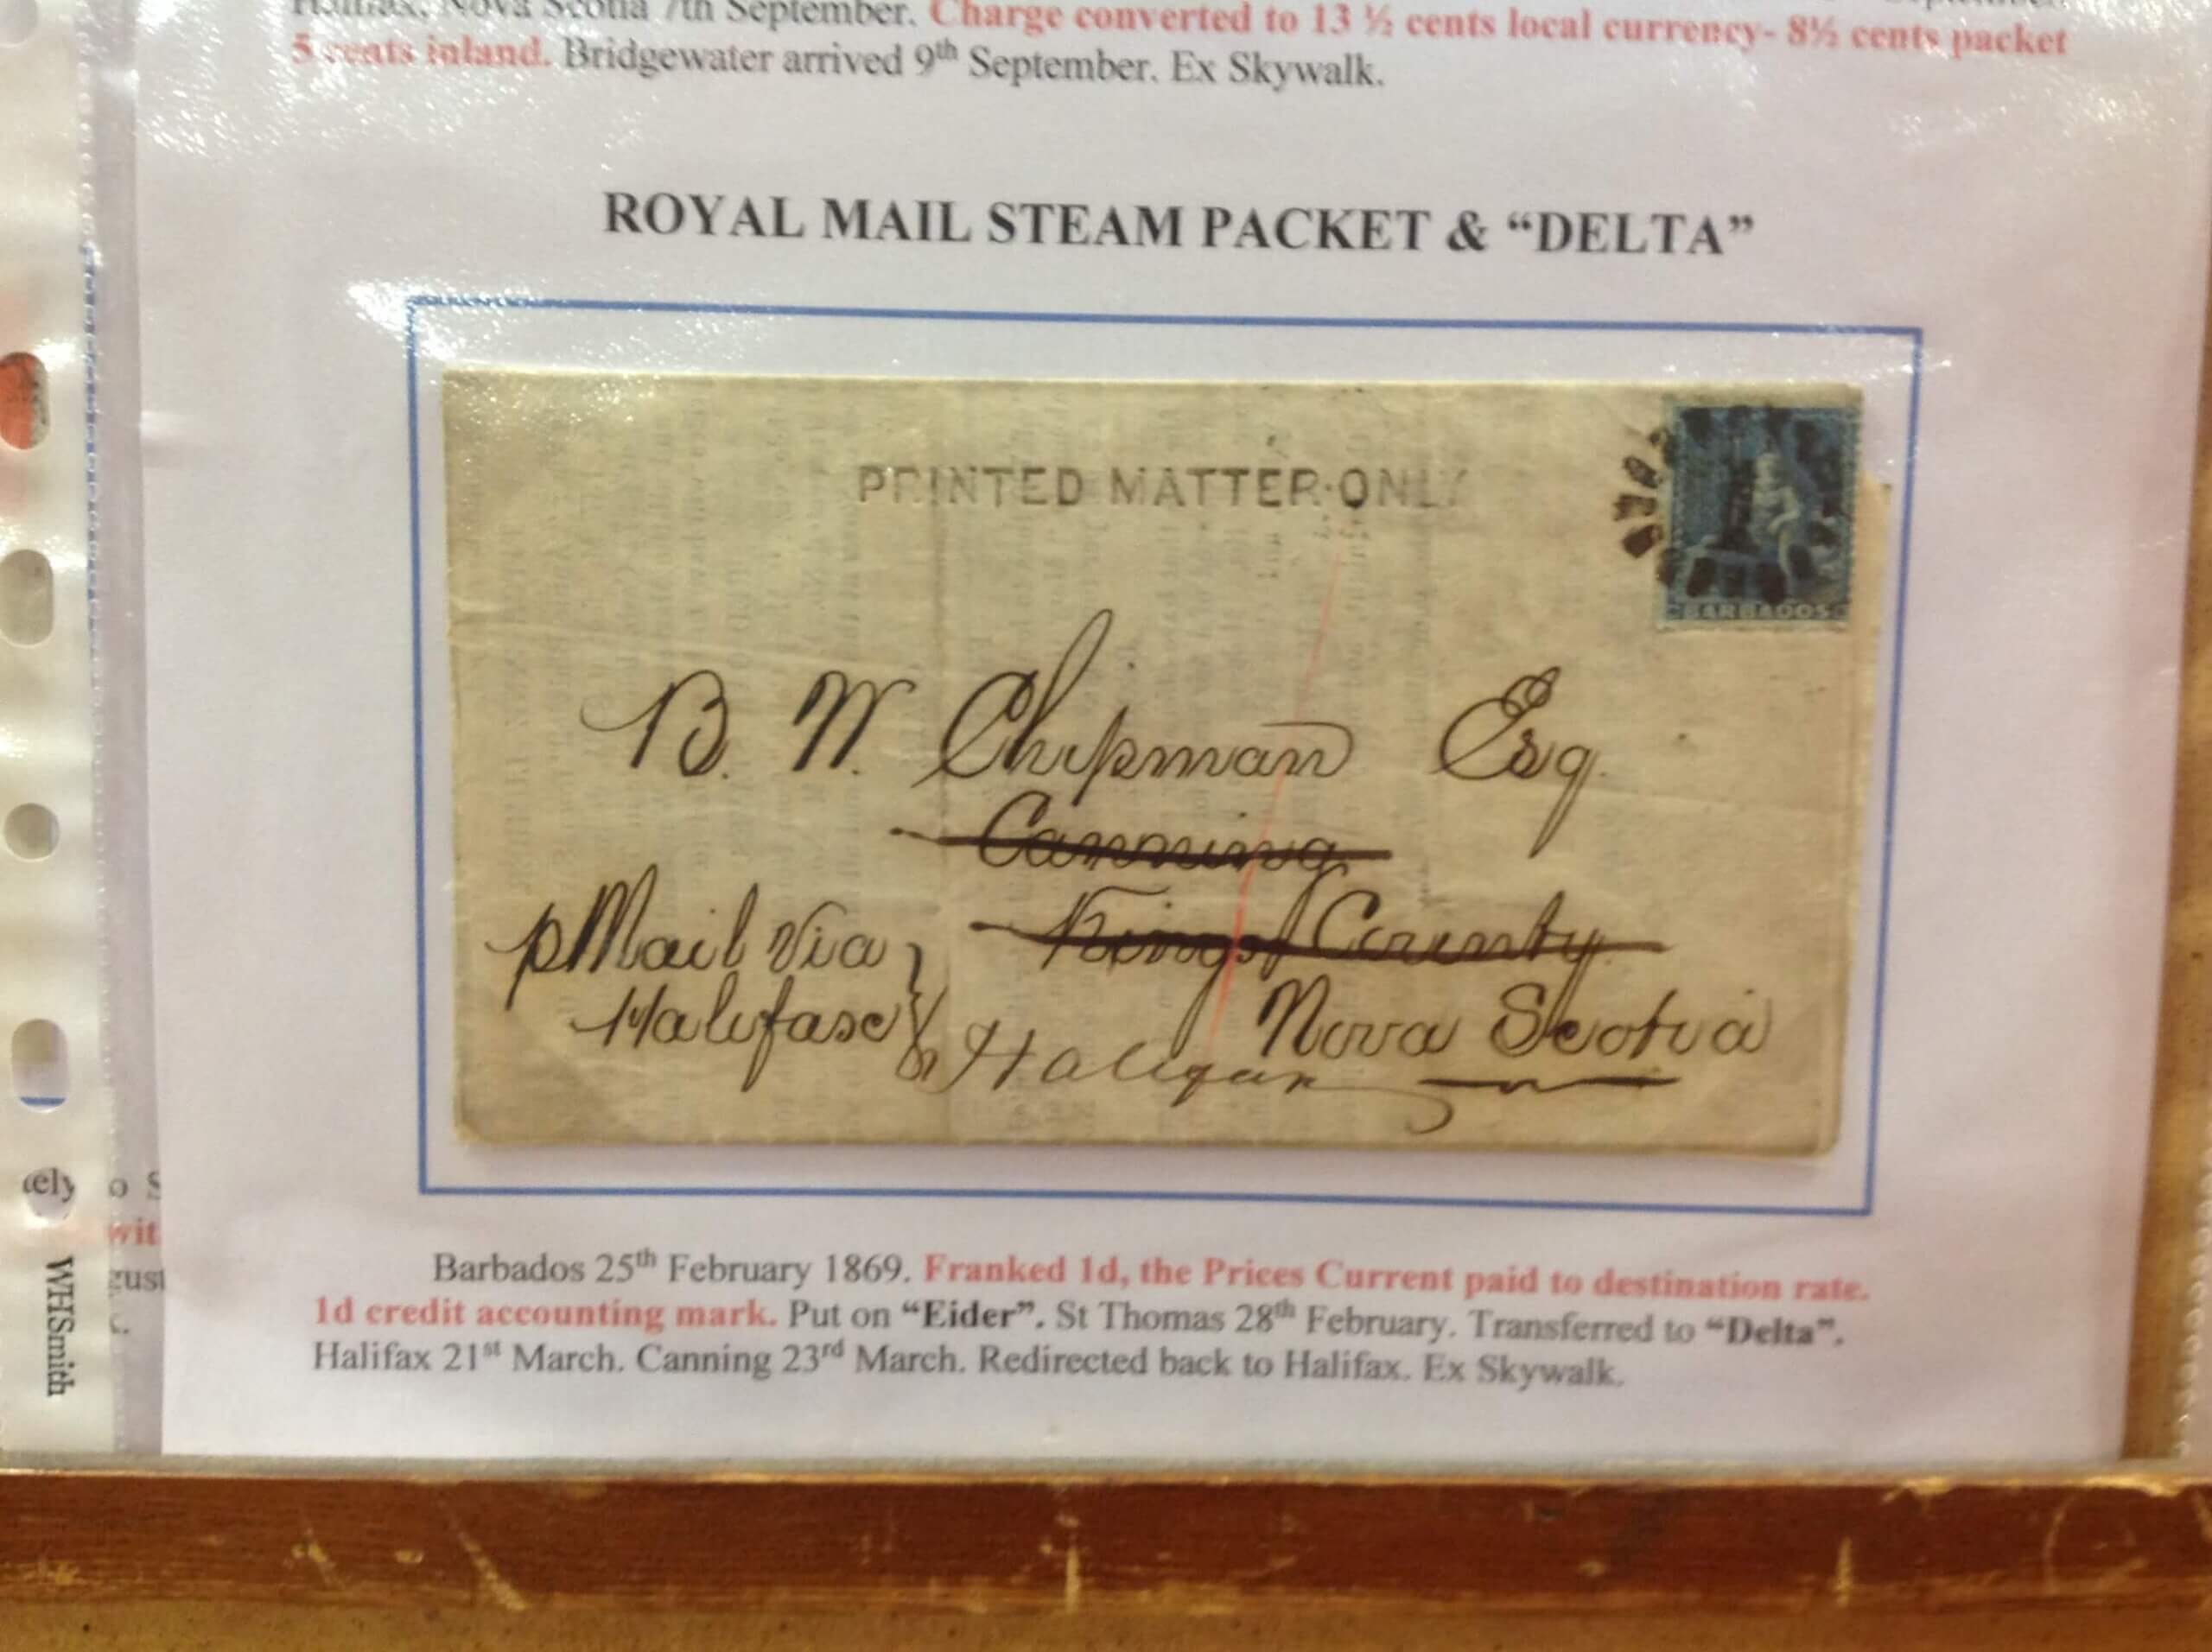 Halifax, Nova Scotia 7th September. Charge converted to 13 ½ cents local currency- 8½ cents packet
5 cents inland. Bridgewater arrived 9th September. Ex Skywalk.
ROYAL MAIL STEAM PACKET & “DELTA”
PRINTED MATTER·ONLY
BARBADOS
B. W. Chipman Esq.
Canning
Kings County
p Mail Via
Halifax
Nova Scotia
Halifax
Barbados 25th February 1869. Franked 1d, the Prices Current paid to destination rate.
1d credit accounting mark. Put on “Eider”. St Thomas 28th February. Transferred to “Delta”.
Halifax 21st March. Canning 23rd March. Redirected back to Halifax. Ex Skywalk.
WHSmith